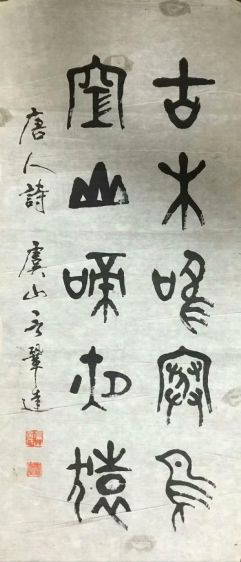 古木鳴寒鳥
空山啼夜猿
唐人詩 虞山